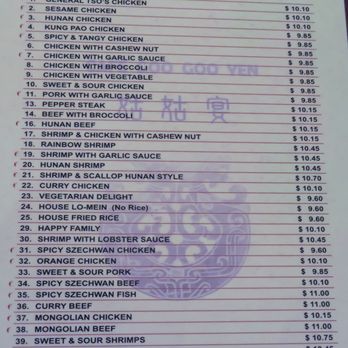 1. GENERAL TSO'S CHICKEN
2. SESAME CHICKEN $ 10.10
3. HUNAN CHICKEN $ 10.10
4. KUNG PAO CHICKEN $ 9.85
5. SPICY & TANGY CHICKEN $ 9.85
6. CHICKEN WITH CASHEW NUT $ 9.85
7. CHICKEN WITH GARLIC SAUCE $ 9.85
8. CHICKEN WITH BROCCOLI $ 9.85
9. CHICKEN WITH VEGETABLE $ 9.85
10. SWEET & SOUR CHICKEN $ 9.85
11. PORK WITH GARLIC SAUCE $ 9.85
13. PEPPER STEAK $ 10.15
14. BEEF WITH BROCCOLI $ 10.15
16. HUNAN BEEF $ 10.15
17. SHRIMP & CHICKEN WITH CASHEW NUT $ 10.15
18. RAINBOW SHRIMP $ 10.45
19. SHRIMP WITH GARLIC SAUCE $ 10.45
20. HUNAN SHRIMP $ 10.45
21. SHRIMP & SCALLOP HUNAN STYLE $ 10.70
22. CURRY CHICKEN $ 10.10
23. VEGETARIAN DELIGHT $ 9.60
24. HOUSE LO-MEIN (No Rice) $ 9.60
25. HOUSE FRIED RICE $ 9.60
29. HAPPY FAMILY $ 10.10
30. SHRIMP WITH LOBSTER SAUCE $ 10.45
31. SPICY SZECHWAN CHICKEN $ 9.85
32. ORANGE CHICKEN $ 10.10
33. SWEET & SOUR PORK $ 9.85
34. SPICY SZECHWAN BEEF $ 10.10
35. SPICY SZECHWAN FISH $ 11.00
36. CURRY BEEF $ 11.00
37. MONGOLIAN CHICKEN $ 10.15
38. MONGOLIAN BEEF $ 11.00
39. SWEET & SOUR SHRIMPS $ 10.75
GOO YEN
姑宴